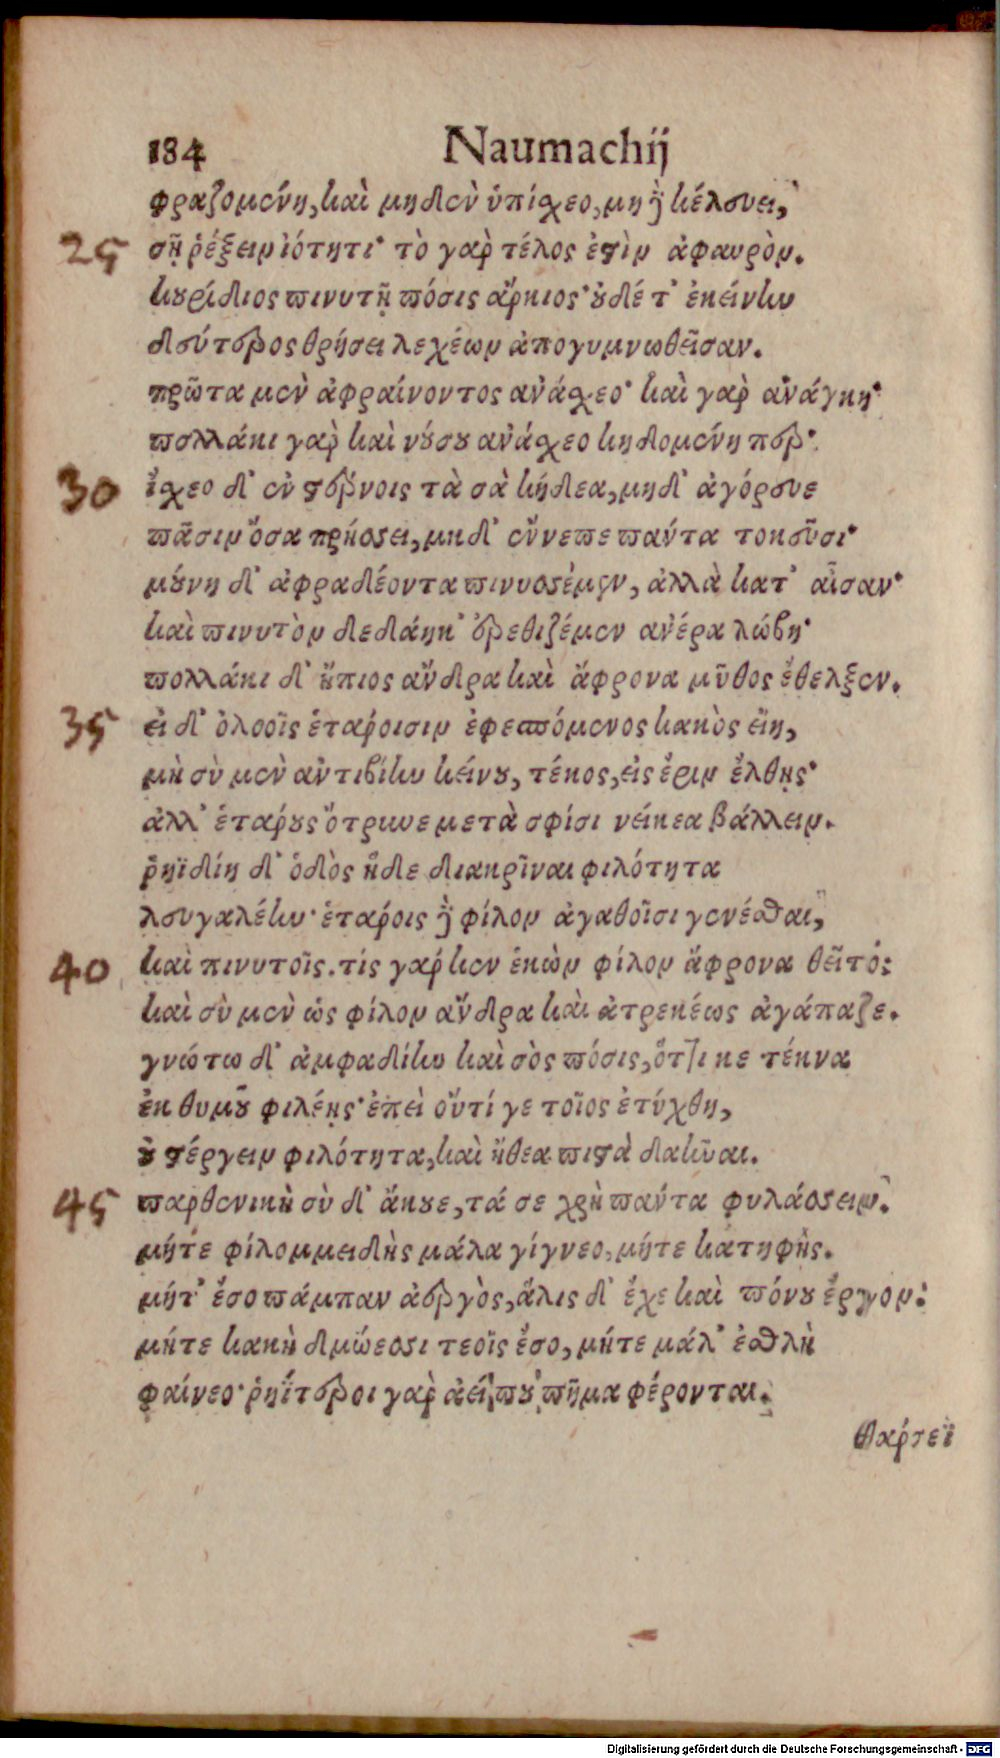 184 Naumachij
φραζομένη, καὶ μηδὲν ὑπίσχεο, μὴ δὲ κέλευε,
25 σῇ ῥέξειν ἰότητι· τὸ γαρ τέλος ἐστὶν ἀφαυρὸν.
κουρίδιος πινυτῇ πόσις ἄρκιος· οὐδέ τ' ἐκείνην
δεύτερος θρήσει λεχέων ἀπογυμνωθεῖσαν.
πρῶτα μὲν ἀφραίνοντος ἀνάσχεο· καὶ γαρ ἀνάγκη·
πολλάκι γαρ καὶ νούσου ἀνάσχεο κηδομένη περ·
30 ἴσχεο δ' ἐν στέρνοις τὰ σὰ κήδεα, μηδ' ἀγόρευε
πᾶσιν ὅσα πρήσσει, μηδ' ἔννεπε παντα τοκεῦσι·
μούνη δ' ἀφραδέοντα πινυσσέμεν, ἀλλὰ κατ' αἶσαν·
καὶ πινυτὸν δεδάηκ' ἐρεθιζέμεν ἀνέρα λώβη·
πολλάκι δ' ἤπιος ἄνδρα καὶ ἄφρονα μῦθος ἔθελξεν.
35 εἰ δ' ὀλοοῖς ἑταροισιν ἐφεσπόμενος κακὸς εἴη,
μὴ σὺ μὲν ἀντιβίην κείνου, τέκος, εἰς ἔριν ἔλθῃς·
ἀλλ' ἑταρους ὄτρυνε μετὰ σφίσι νείκεα βάλλειν.
ῥηϊδίη δ' ὁδὸς ἥδε διακρῖναι φιλότητα
λευγαλέην· ἑταροις δὲ φίλον ἀγαθοῖσι γενέσθαι,
40 καὶ πινυτοῖς. τίς γαρ κεν ἑκὼν φίλον ἄφρονα θεῖτο;
καὶ σὺ μὲν ὡς φίλον ἄνδρα καὶ ἀτρεκέως ἀγάπαζε.
γνώτω δ' ἀμφαδίην καὶ σὸς πόσις, ὅττι κε τέκνα
ἐκ θυμοῦ φιλέῃς· ἐπεὶ οὔτί γε τοῖος ἐτύχθη,
οὐ στέργειν φιλότητα, καὶ ἤθεα πιστὰ δαῆναι.
45 παρθενικὴ σὺ δ' ἄκουε, τά σε χρὴ παντα φυλάσσειν.
μήτε φίλομμειδὴς μάλα γίγνεο, μήτε κατηφὴς.
μήτ' ἔσο πάμπαν ἀεργὸς, ἅλις δ' ἔχε καὶ πόνου ἔργον:
μήτε κακὴ δμώεσσι τεοῖς ἔσο, μήτε μάλ' ἐσθλὴ
φαίνεο· ῥηΐτεροι γαρ ἀεί που πῆμα φέρονται.
θαρσεῖ
Digitalisierung gefördert durch die Deutsche Forschungsgemeinschaft - DFG